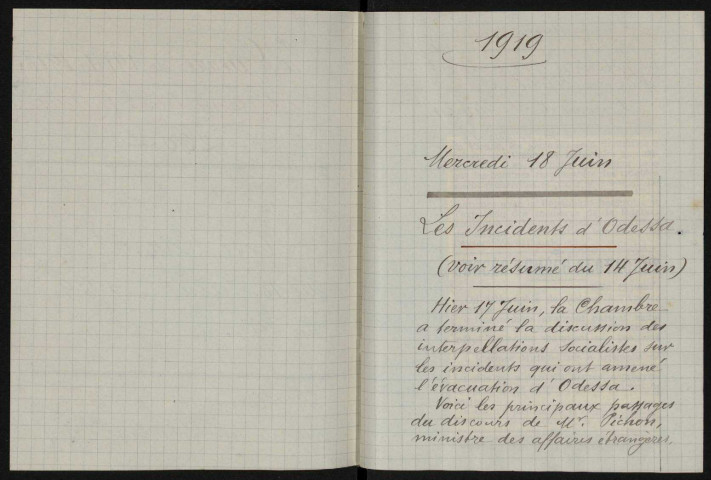 1919
Mercredi 18 Juin
Les Incidents d'Odessa.
(voir résumé du 14 Juin)
Hier 17 Juin, la Chambre
a terminé la discussion des
interpellations socialistes sur
les incidents qui ont amené
l'évacuation d'Odessa.
Voici les principaux passages
du discours de Mr. Pichon,
ministre des affaires étrangères.